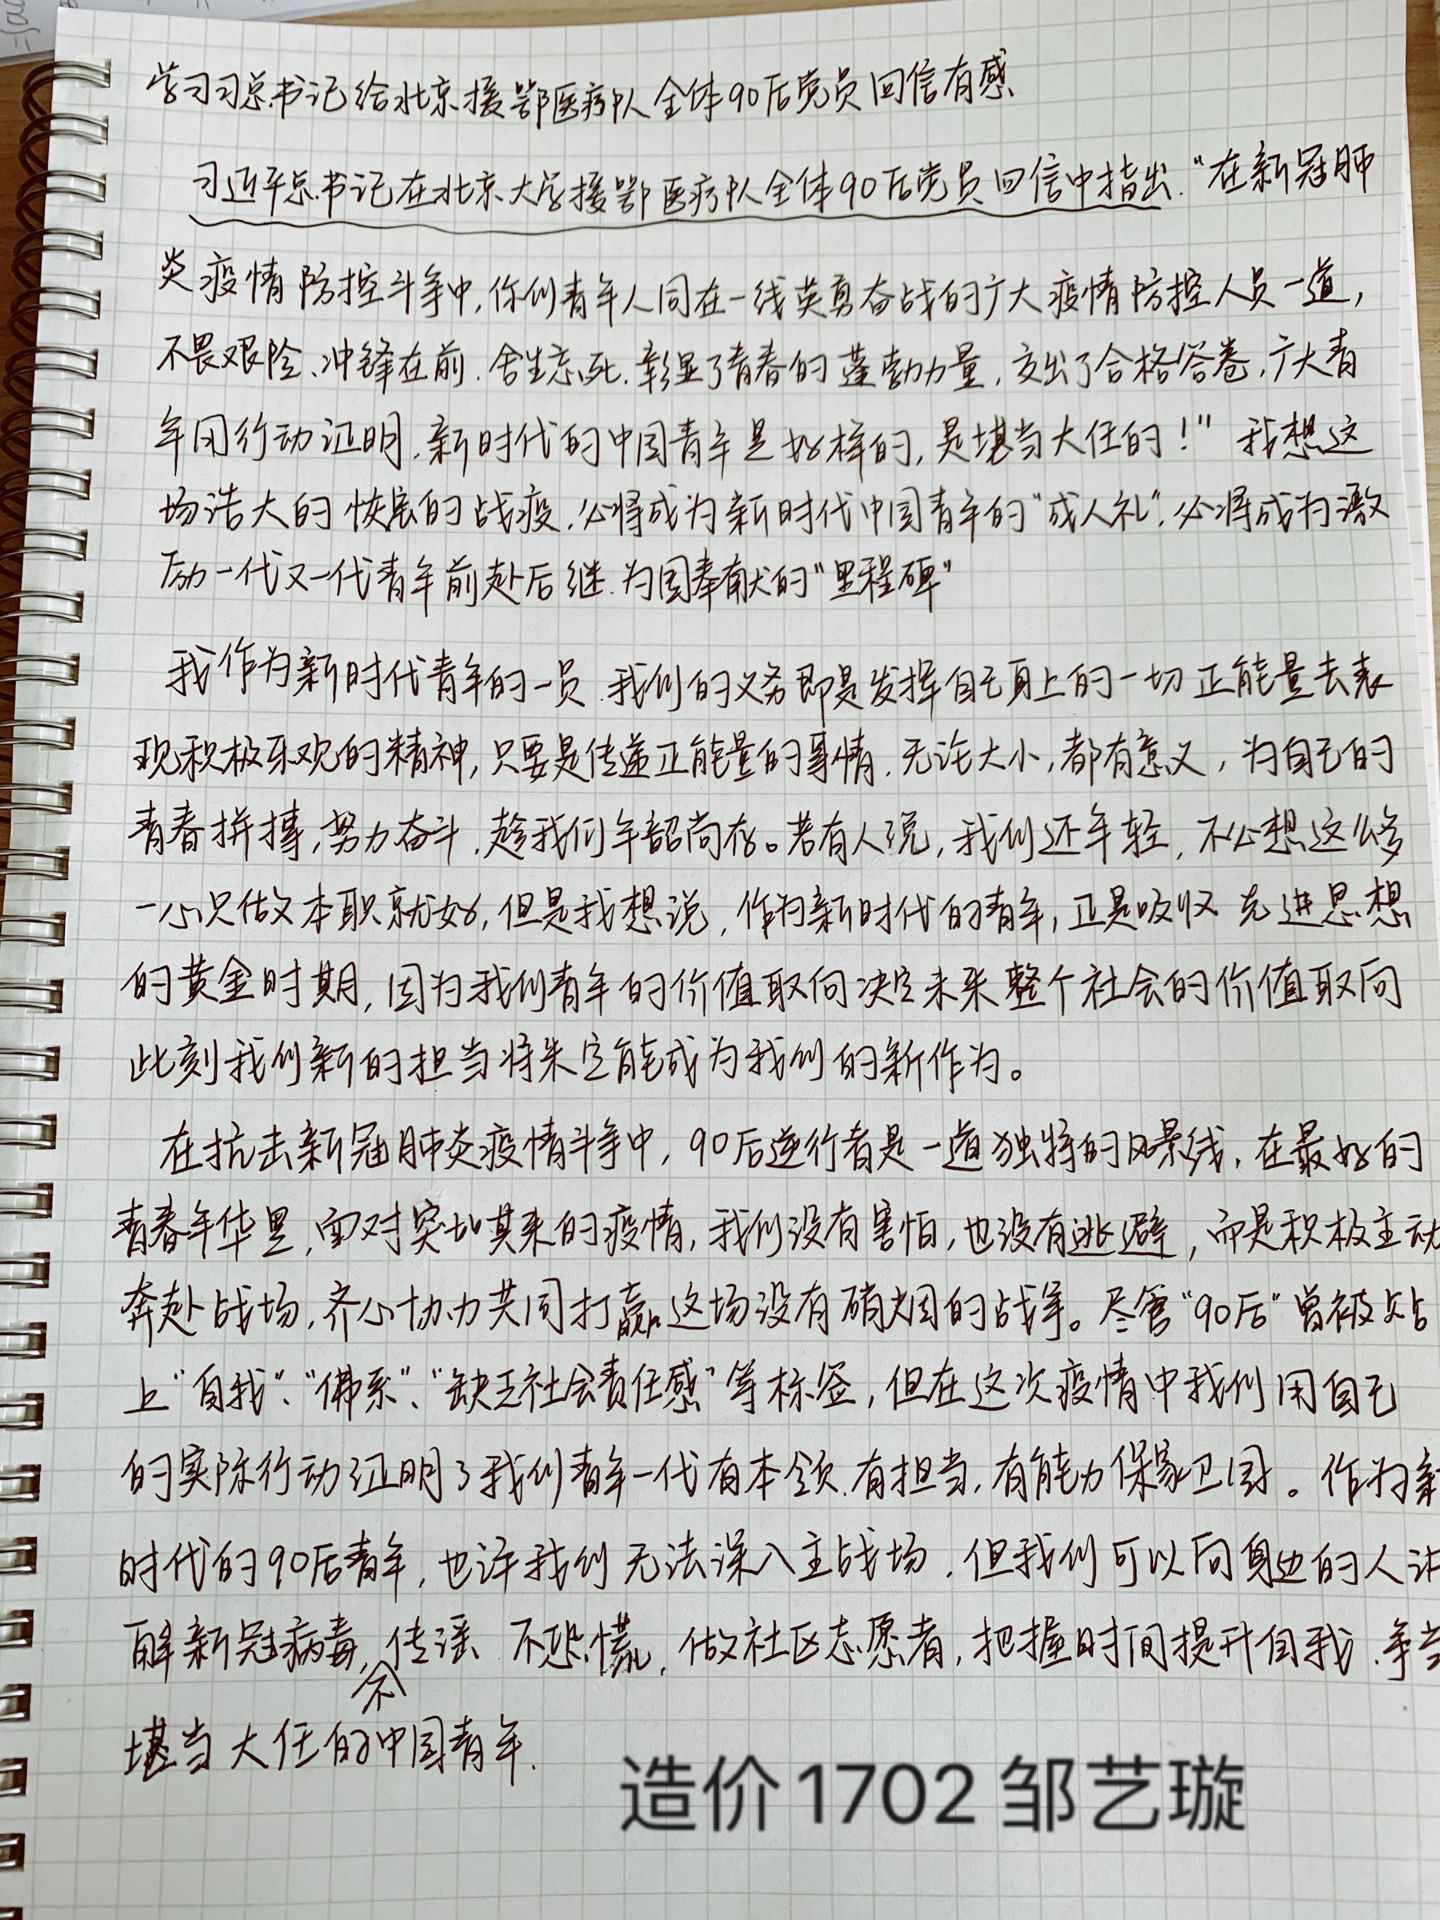 学习习总书记给北京援鄂医疗队全体90后党员回信有感
习近平总书记在北京大学援鄂医疗队全体90后党员回信中指出.“在新冠肺
炎疫情防控斗争中,你们青年人同在一线英勇奋战的广大疫情防控人员一道,
不畏艰险、冲锋在前、舍生忘死,彰显了青春的蓬勃力量,交出了合格答卷,广大青
年用行动证明,新时代的中国青年是好样的,是堪当大任的!”我想这
场浩大的恢宏的战疫,必将成为新时代中国青年的“成人礼”,必将成为激
励一代又一代青年前赴后继.为国奉献的“里程碑”
我作为新时代青年的一员.我们的义务即是发挥自己身上的一切正能量去表
现积极乐观的精神,只要是传递正能量的事情,无论大小,都有意义,为自己的
青春拼搏,努力奋斗,趁我们年韶尚存。若有人说,我们还年轻,不必想这么多
一心只做本职就好,但是我想说,作为新时代的青年,正是吸收先进思想
的黄金时期,因为我们青年的价值取向决定未来整个社会的价值取向
此刻我们新的担当将来定能成为我们的新作为。
在抗击新冠肺炎疫情斗争中,90后逆行者是一道独特的风景线,在最好的
青春年华里,面对突如其来的疫情,我们没有害怕,也没有逃避,而是积极主动
奔赴战场,齐心协力共同打赢这场没有硝烟的战争。尽管“90后”曾被贴
上“自我”、“佛系”、“缺乏社会责任感”等标签,但在这次疫情中我们用自己
的实际行动证明了我们青年一代有本领.有担当,有能力保家卫国。作为新
时代的90后青年,也许我们无法深入主战场,但我们可以向身边的人讲
解新冠病毒,不传谣 不恐慌,做社区志愿者,把握时间提升自我.争当
堪当大任的中国青年.
造价1702 邹艺璇